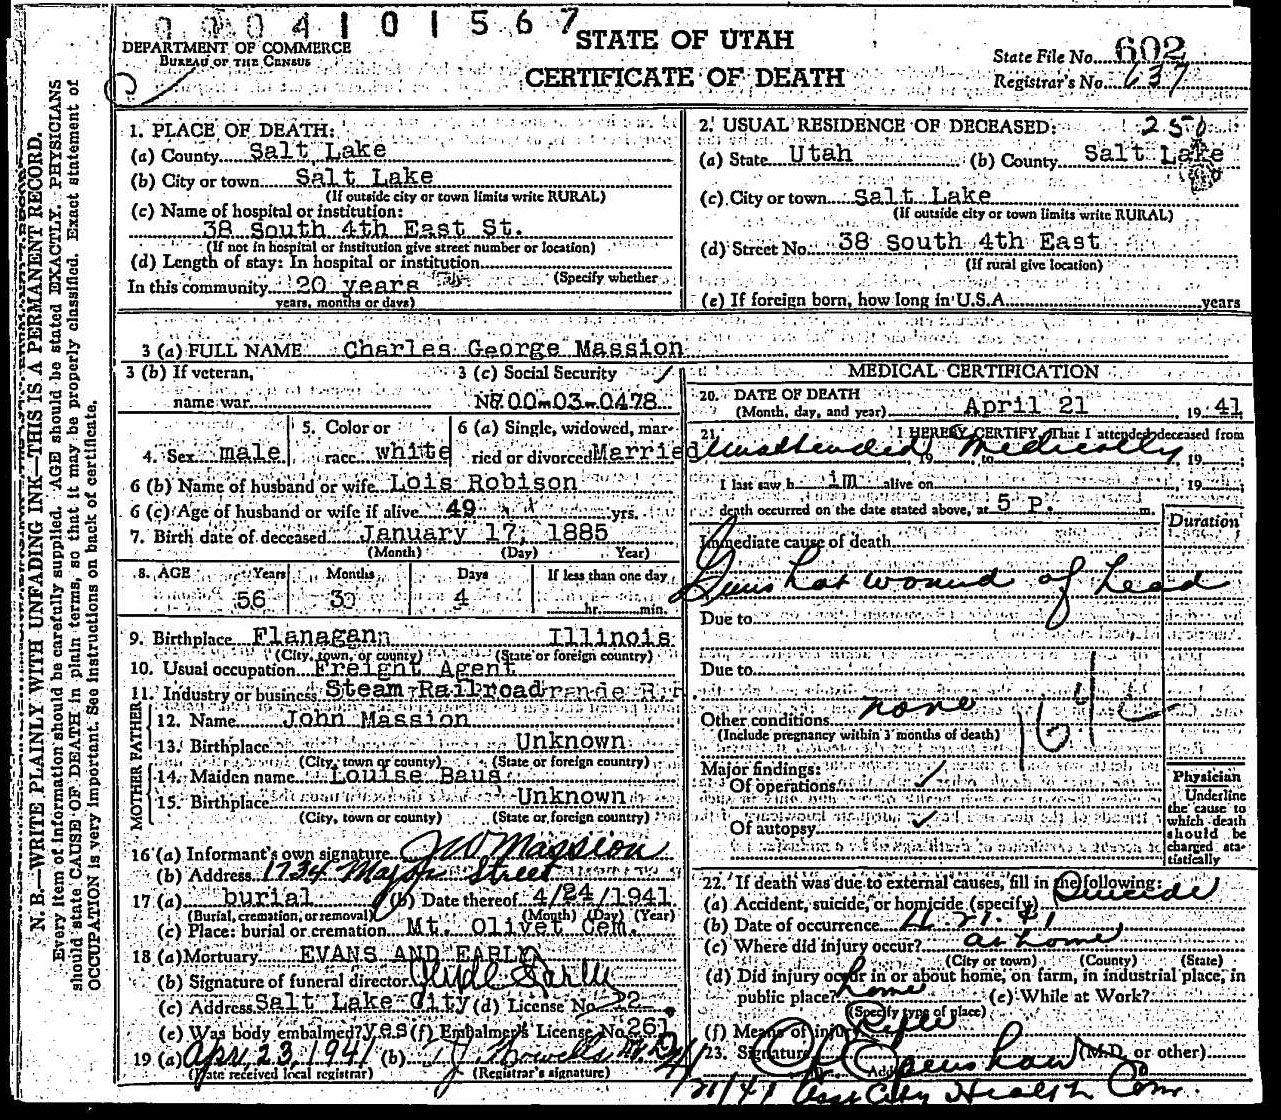 0004101567
DEPARTMENT OF COMMERCE
BUREAU OF THE CENSUS
STATE OF UTAH
CERTIFICATE OF DEATH
State File No. 602
Registrar's No. 637
N. B.—WRITE PLAINLY WITH UNFADING INK—THIS IS A PERMANENT RECORD.
Every item of information should be carefully supplied. AGE should be stated EXACTLY. PHYSICIANS
should state CAUSE OF DEATH in plain terms, so that it may be properly classified. Exact statement of
OCCUPATION is very important. See instructions on back of certificate.
1. PLACE OF DEATH:
(a) County Salt Lake
(b) City or town Salt Lake
(If outside city or town limits write RURAL)
(c) Name of hospital or institution:
38 South 4th East St.
(If not in hospital or institution give street number or location)
(d) Length of stay: In hospital or institution
(Specify whether
In this community 20 years
years, months or days)
2. USUAL RESIDENCE OF DECEASED: 250
(a) State Utah (b) County Salt Lake
(c) City or town Salt Lake
(If outside city or town limits write RURAL)
(d) Street No. 38 South 4th East
(If rural give location)
(e) If foreign born, how long in U.S.A. years
3 (a) FULL NAME Charles George Massion
3 (b) If veteran,
name war
3 (c) Social Security
No. 700-03-0478
4. Sex male
5. Color or
race white
6 (a) Single, widowed, mar-
ried or divorced Married
6 (b) Name of husband or wife Lois Robison
6 (c) Age of husband or wife if alive 49 yrs.
7. Birth date of deceased January 17, 1885
(Month) (Day) Year)
8. AGE Years Months Days If less than one day
56 3 4 hr. min.
9. Birthplace Flanagann Illinois
(City, town, or county) (State or foreign country)
10. Usual occupation Freight Agent
11. Industry or business Steam Railroad
FATHER
12. Name John Massion
13. Birthplace Unknown
(City, town or county) (State or foreign country)
MOTHER
14. Maiden name Louise Baus
15. Birthplace Unknown
(City, town or county) (State or foreign country)
16 (a) Informant's own signature J W Massion
(b) Address 1734 Major Street
17 (a) burial (b) Date thereof 4/24/1941
(Burial, cremation, or removal) (Month) (Day) (Year)
(c) Place: burial or cremation Mt. Olivet Cem.
18 (a) Mortuary EVANS AND EARLY
(b) Signature of funeral director Clyde Early
(c) Address Salt Lake City (d) License No. 22
(e) Was body embalmed? yes (f) Embalmer's License No. 261
19 (a) Apr, 23, 1941 (b) T J Howells M.D.
(Date received local registrar) (Registrar's signature)
MEDICAL CERTIFICATION
20. DATE OF DEATH
(Month, day, and year) April 21, 1941
21. I HEREBY CERTIFY, That I attended deceased from
Unattended, 19 to Medically, 19
I last saw h im alive on 19
death occurred on the date stated above, at 5 P. m.
Duration
Immediate cause of death
Gunshot wound of head
Due to
Due to
Other conditions none
(Include pregnancy within 3 months of death)
164 c
Major findings:
Of operations ✓
Of autopsy ✓
Physician
Underline
the cause to
which death
should be
charged sta-
tistically
22. If death was due to external causes, fill in the following:
(a) Accident, suicide, or homicide (specify) Suicide
(b) Date of occurrence 4.21.41
(c) Where did injury occur? at home
(City or town) (County) (State)
(d) Did injury occur in or about home, on farm, in industrial place, in
public place? home (e) While at Work?
(Specify type of place)
(f) Means of injury Rifle
23. Signature Openshaw (M.D. or other)
4/21/41 Asst City Health Com.